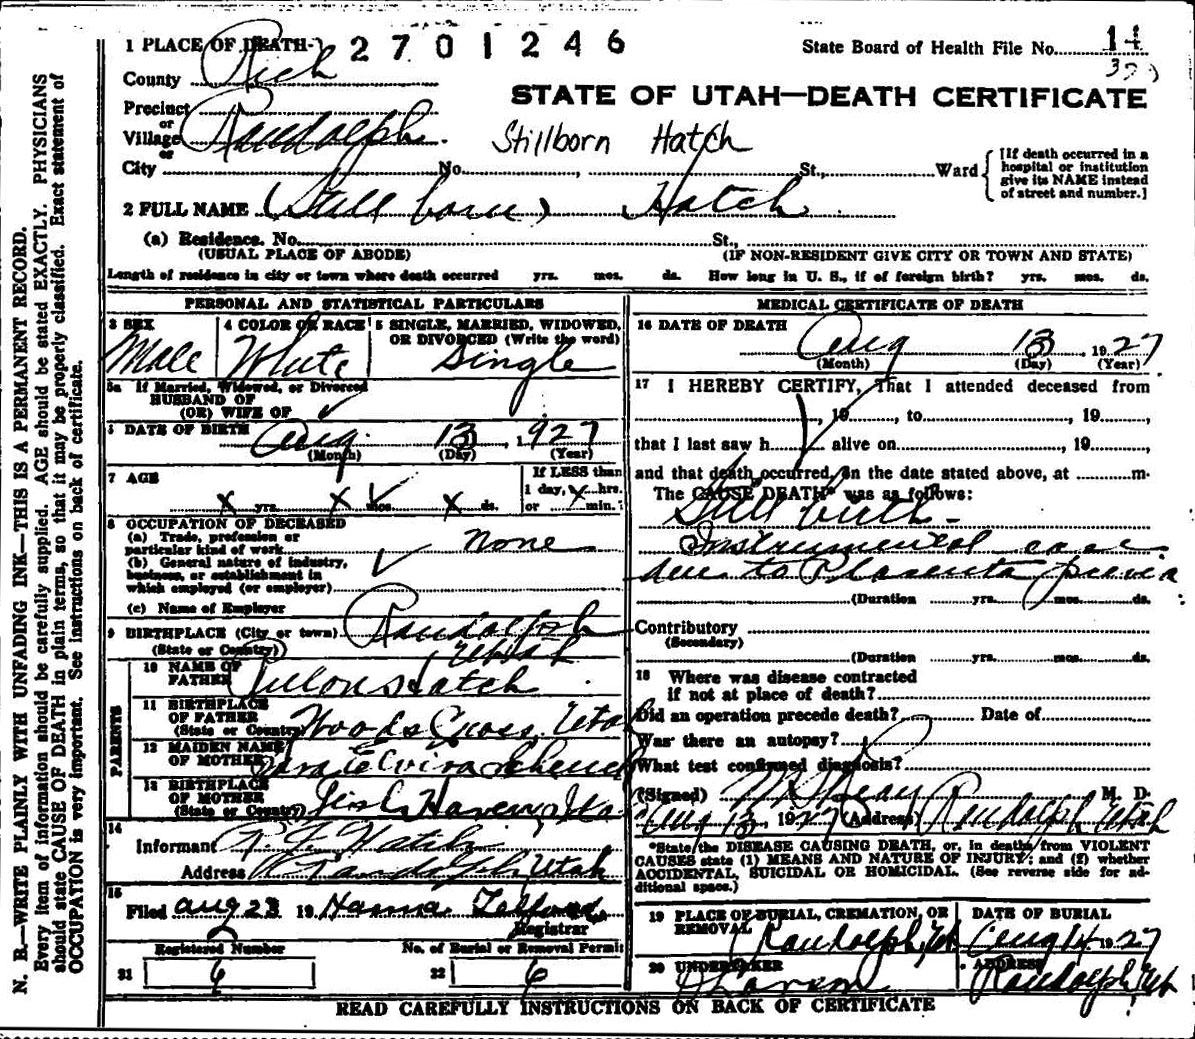 1 PLACE OF DEATH- 2701246
State Board of Health File No. 14
County Rich
STATE OF UTAH—DEATH CERTIFICATE
Precinct
or
Village Randolph
Stillborn Hatch
or
City No. , St., Ward
[If death occurred in a hospital or institution give its NAME instead of street and number.]
2 FULL NAME (Still born) Hatch
(a) Residence. No. St.,
(USUAL PLACE OF ABODE) (IF NON-RESIDENT GIVE CITY OR TOWN AND STATE)
Length of residence in city or town where death occurred yrs. mos. ds. How long in U. S., if of foreign birth? yrs. mos. ds.
PERSONAL AND STATISTICAL PARTICULARS
3 SEX Male
4 COLOR OR RACE White
5 SINGLE, MARRIED, WIDOWED, OR DIVORCED (Write the word) Single
5a If Married, Widowed, or Divorced
HUSBAND OF
(OR) WIFE OF
DATE OF BIRTH Aug. 13, 1927
(Month) (Day) (Year)
7 AGE
x yrs. x mos. x ds.
If LESS than
1 day, x hrs.
or min.
8 OCCUPATION OF DECEASED
(a) Trade, profession or
particular kind of work None
(b) General nature of industry,
business, or establishment in
which employed (or employer)
(c) Name of Employer
9 BIRTHPLACE (City or town) Randolph
(State or Country) Utah
PARENTS
10 NAME OF
FATHER Hatch
11 BIRTHPLACE
OF FATHER
(State or Country) Woods Cross, Utah
12 MAIDEN NAME
OF MOTHER Elvira
13 BIRTHPLACE
OF MOTHER
(State or Country) Fish Haven,
14
Informant
Address Randolph, Utah
15
Filed Aug 23 19 Hanna
Registrar
Registered Number No. of Burial or Removal Permit
21 6 22 6
MEDICAL CERTIFICATE OF DEATH
16 DATE OF DEATH
Aug 13, 1927
(Month) (Day) (Year)
17 I HEREBY CERTIFY, That I attended deceased from
, 19 , to , 19
that I last saw h alive on , 19
and that death occurred, on the date stated above, at m.
The CAUSE DEATH* was as follows:
Still birth -
Instrumental case
due to Placenta previa
(Duration yrs. mos. ds.
Contributory
(Secondary)
(Duration yrs. mos. ds.
18 Where was disease contracted
if not at place of death?
Did an operation precede death? Date of
Was there an autopsy?
What test confirmed diagnosis?
(Signed) M. D.
Aug 13, 1927 (Address) Randolph Utah
*State the DISEASE CAUSING DEATH, or, in deaths from VIOLENT
CAUSES state (1) MEANS AND NATURE OF INJURY; and (2) whether
ACCIDENTAL, SUICIDAL OR HOMICIDAL. (See reverse side for ad-
ditional space.)
19 PLACE OF BURIAL, CREMATION, OR
REMOVAL Randolph, Ut.
DATE OF BURIAL
Aug 14 1927
20 UNDERTAKER
ADDRESS
Randolph, Ut
READ CAREFULLY INSTRUCTIONS ON BACK OF CERTIFICATE
N. B.—WRITE PLAINLY WITH UNFADING INK—THIS IS A PERMANENT RECORD.
Every item of information should be carefully supplied. AGE should be stated EXACTLY. PHYSICIANS
should state CAUSE OF DEATH in plain terms, so that it may be properly classified. Exact statement of
OCCUPATION is very important. See instructions on back of certificate.